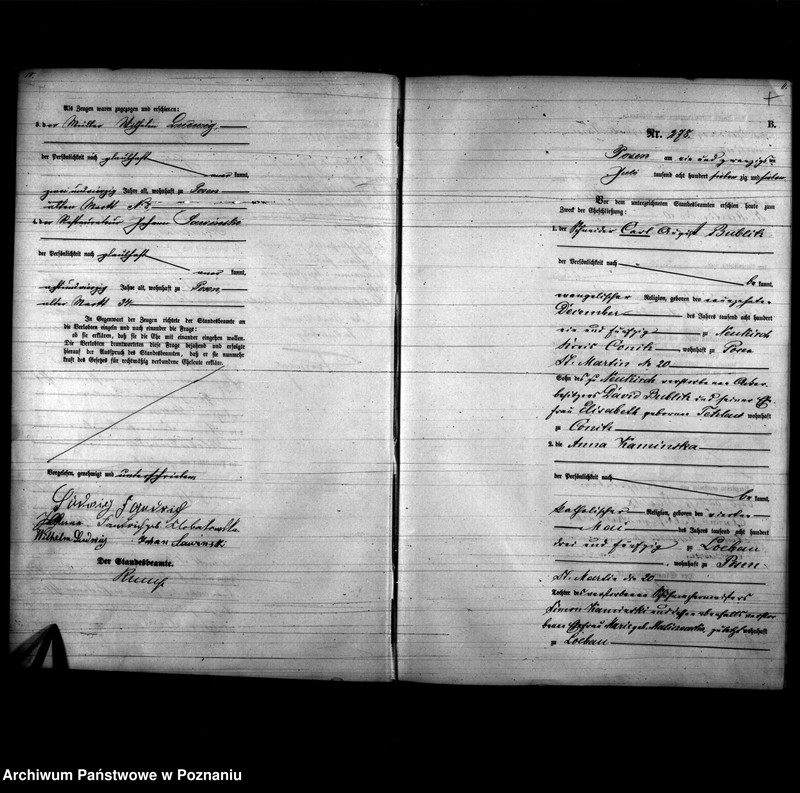 Als Zeugen waren zugegegen und erschienen:
3. der Müller Wilhelm Ludwig
der Persönlichkeit nach glaubhaft
kannt,
zwei und vierzig Jahre alt, wohnhaft zu Posen
alten Markt No
4. der Restaurateur Johann
der Persönlichkeit nach glaubhaft
kannt,
Jahre alt, wohnhaft zu Posen
alter Markt 34
In Gegenwart der Zeugen richtete der Standesbeamte an
die Verlobten einzeln und nach einander die Frage:
ob sie erklären, daß sie die Ehe mit einander eingehen wollen.
Die Verlobten beantworteten diese Frage bejahend und erfolgte
hierauf der Ausspruch des Standesbeamten, daß er sie nunmehr
kraft des Gesetzes für rechtmäßig verbundene Eheleute erkläre.
Vorgelesen, genehmigt und unterschrieben
Ludwig
Wilhelm Ludwig Johan
Der Standesbeamte.
B.
Nr. 278.
Posen am ein und zwanzigsten
Juli tausend acht hundert sieben zig und sieben
Vor dem unterzeichneten Standesbeamten erschien heute zum
Zweck der Eheschließung:
1. der Schneider Carl August Bublitz
der Persönlichkeit nach
be kannt,
evangelischer Religion, geboren den
December des Jahres tausend acht hundert
ein und fünfzig zu Neukirch
Kreis Conitz, wohnhaft zu Posen
St. Martin No 20
Sohn des zu Neukirch verstorbenen Acker
besitzers David Bublitz und seiner Ehe
frau Elisabeth geborene wohnhaft
zu Conitz
2. die Anna Kaminska
der Persönlichkeit nach
be kannt,
katholischer Religion, geboren den vierten
Mai des Jahres tausend acht hundert
drei und fünfzig zu Loebau
, wohnhaft zu Posen
St. Martin No 20
Tochter des verstorbenen Schuhmachermeisters
Simon Kaminski und dessen ebenfalls verstor
benen Ehefrau Marie geb. zuletzt wohnhaft
zu Löbau
Archiwum Państwowe w Poznaniu